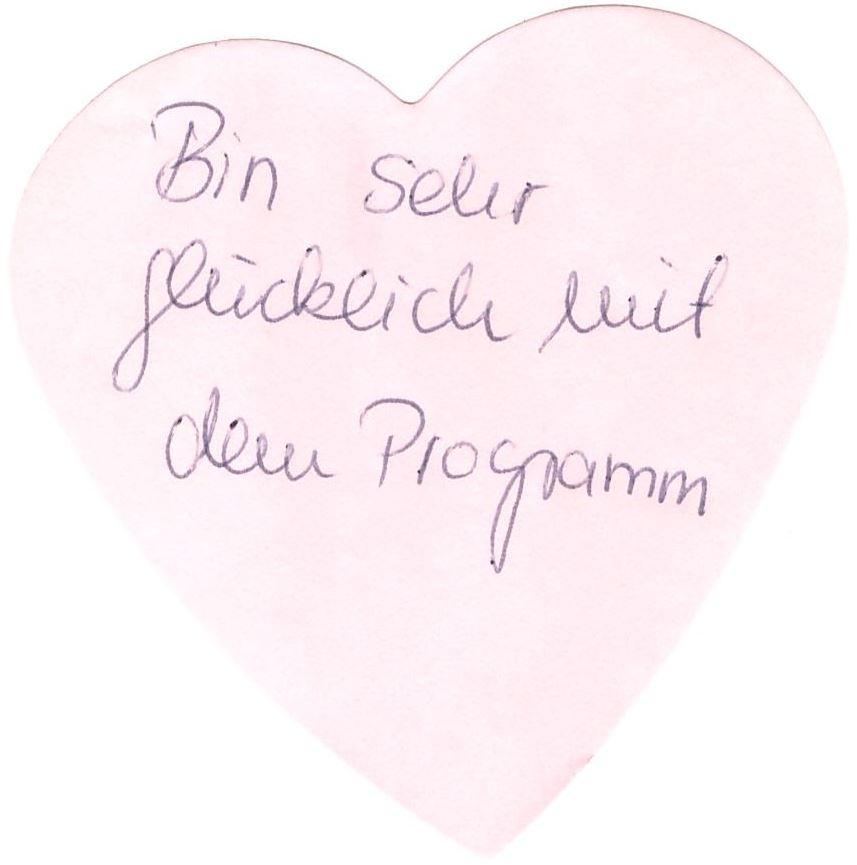 Bin sehr
glücklich mit
dem Programm